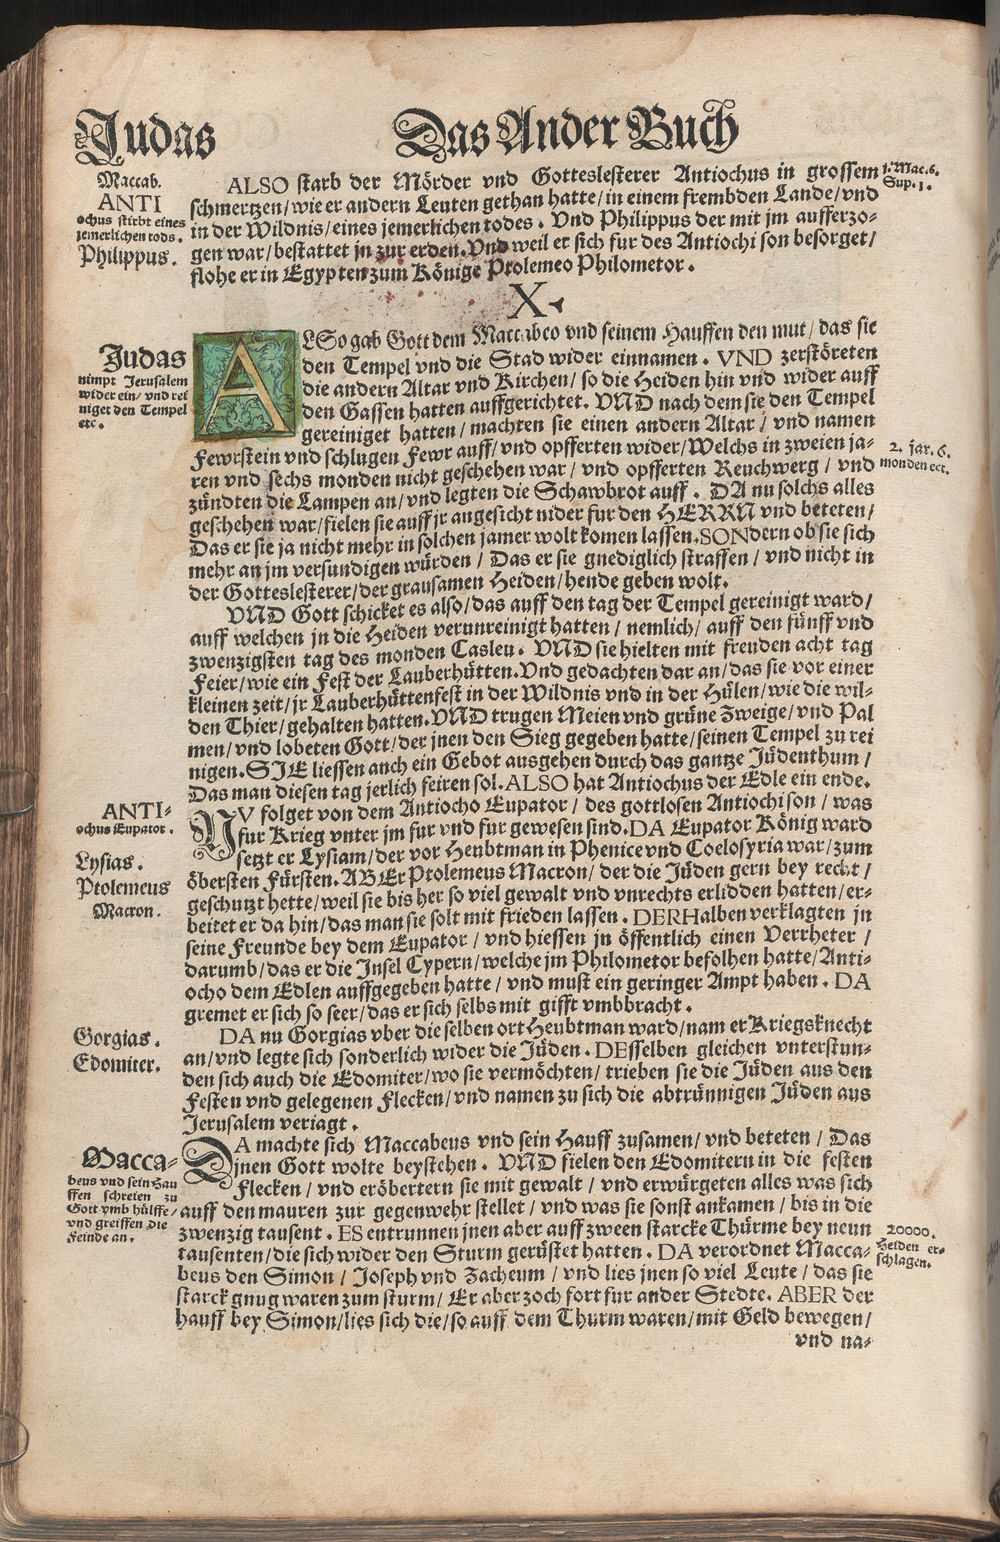 Judas
Das Ander Buch
Maccab.
ANTI
ochus stirbt eines
jemerlichen tods.
Philippus.
ALSO starb der Mörder vnd Gotteslesterer Antiochus in grossem
schmertzen/wie er andern Leuten gethan hatte/in einem frembden Lande/vnd
in der Wildnis/eines jemerlichen todes. Vnd Philippus der mit jm aufferzo-
gen war/bestattet jn zur erden. Vnd weil er sich fur des Antiochi son besorget/
flohe er in Egypten zum Könige Ptolemeo Philometor.
1. Mac. 6.
Sup. 1.
X.
Judas
nimpt Jerusalem
wider ein/ vnd rei
niget den Tempel
etc.
ALSo gab Gott dem Maccabeo vnd seinem Hauffen den mut/das sie
den Tempel vnd die Stad wider einnamen. VND zerstöreten
die andern Altar vnd Kirchen/so die Heiden hin vnd wider auff
den Gassen hatten auffgerichtet. VND nach dem sie den Tempel
gereiniget hatten/machten sie einen andern Altar/ vnd namen
Fewrstein vnd schlugen Fewr auff/vnd opfferten wider/Welchs in zweien ja-
ren vnd sechs monden nicht geschehen war/ vnd opfferten Reuchwerg/ vnd
zündten die Lampen an/vnd legten die Schawbrot auff. DA nu solchs alles
geschehen war/fielen sie auff jr angesicht nider fur den HERRN vnd beteten/
Das er sie ja nicht mehr in solchen jamer wolt komen lassen. SONdern ob sie sich
mehr an jm versundigen würden/ Das er sie gnediglich straffen/ vnd nicht in
der Gotteslesterer/der grausamen Heiden/hende geben wolt.
2. jar. 6.
monden ect.
VND Gott schicket es also/das auff den tag der Tempel gereinigt ward/
auff welchen jn die Heiden verunreinigt hatten/ nemlich/ auff den fünff vnd
zwenzigsten tag des monden Casleu. VND sie hielten mit freuden acht tag
Feier/wie ein Fest der Lauberhütten. Vnd gedachten dar an/das sie vor einer
kleinen zeit/jr Lauberhüttenfest in der Wildnis vnd in der Hülen/wie die wil-
den Thier/gehalten hatten. VND trugen Meien vnd grüne Zweige/vnd Pal
men/vnd lobeten Gott/der jnen den Sieg gegeben hatte/seinen Tempel zu rei
nigen. SIE liessen auch ein Gebot ausgehen durch das gantze Jüdenthum/
Das man diesen tag jerlich feiren sol. ALSO hat Antiochus der Edle ein ende.
ANTI-
ochus Eupator.
Lysias.
Ptolemeus
Macron.
NV folget von dem Antiocho Eupator/ des gottlosen Antiochi son/ was
fur Krieg vnter jm fur vnd fur gewesen sind. DA Eupator König ward
setzt er Lysiam/der vor Heubtman in Phenice vnd Coelosyria war/zum
öbersten Fürsten. ABEr Ptolemeus Macron/ der die Jüden gern bey recht/
geschutzt hette/weil sie bis her so viel gewalt vnd vnrechts erlidden hatten/er-
beitet er da hin/das man sie solt mit frieden lassen. DERHalben verklagten jn
seine Freunde bey dem Eupator/ vnd hiessen jn öffentlich einen Verrheter/
darumb/das er die Insel Cypern/welche jm Philometor befolhen hatte/Anti-
ocho dem Edlen auffgegeben hatte/ vnd must ein geringer Ampt haben. DA
gremet er sich so seer/das er sich selbs mit gifft vmbbracht.
Gorgias.
Edomiter.
DA nu Gorgias vber die selben ort Heubtman ward/nam er Kriegsknecht
an/vnd legte sich sonderlich wider die Jüden. DEsselben gleichen vnterstun-
den sich auch die Edomiter/wo sie vermöchten/ trieben sie die Jüden aus den
Festen vnd gelegenen Flecken/vnd namen zu sich die abtrünnigen Jüden aus
Jerusalem veriagt.
Macca-
beus vnd sein Hau
ffen schreien zu
Gott vmb hülffe/
vnd greiffen die
Feinde an.
DA machte sich Maccabeus vnd sein Hauff zusamen/vnd beteten/ Das
jnen Gott wolte beystehen. VND fielen den Edomitern in die festen
Flecken/ vnd eröbertern sie mit gewalt/ vnd erwürgeten alles was sich
auff den mauren zur gegenwehr stellet/ vnd was sie sonst ankamen/ bis in die
zwenzig tausent. ES entrunnen jnen aber auff zween starcke Thürme bey neun
tausenten/die sich wider den Sturm gerüstet hatten. DA verordnet Macca-
beus den Simon/ Joseph vnd Zacheum/ vnd lies jnen so viel Leute/ das sie
starck gnug waren zum sturm/ Er aber zoch fort fur ander Stedte. ABER der
hauff bey Simon/lies sich die/so auff dem Thurm waren/mit Geld bewegen/
20000.
Heiden er-
schlagen.
vnd na-